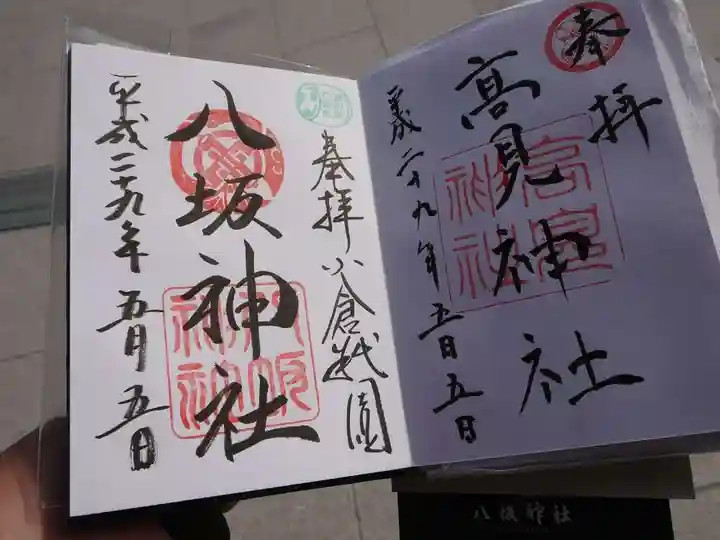 奉拝
高見神社
平成二十九年五月五日
奉拝 小倉祇園
八坂神社
平成二十九年 五月五日
八坂神社